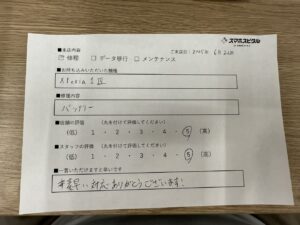 スマホスピタル
ご来店日: 2025年 6月22日
■来店内容
☑ 修理 □ データ移行 □ メンテナンス
■お持ち込みいただいた機種
Xperia 1 Ⅳ
■修理内容
バッテリー
■店舗の評価 (丸を付けて評価してください)
(低) 1 ・ 2 ・ 3 ・ 4 ・ 5 (高)
■スタッフの評価 (丸を付けて評価してください)
(低) 1 ・ 2 ・ 3 ・ 4 ・ 5 (高)
■一言いただけますと幸いです
素早い対応ありがとうございます!